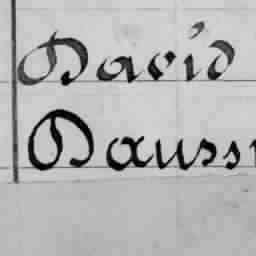 David
Dauss